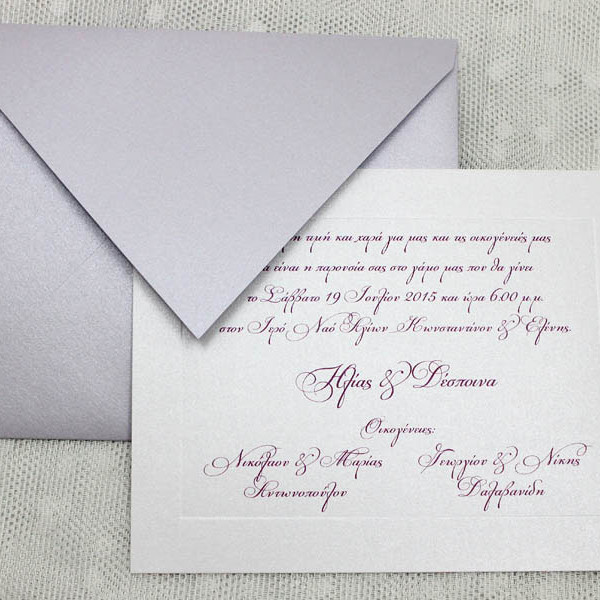 τιμή και χαρά για μας και τις οικογένειές μας
είναι η παρουσία σας στο γάμο μας που θα γίνει
το Σάββατο 19 Ιουλίου 2015 και ώρα 6:00 μ.μ.
στον Ιερό Ναό Αγίων Κωνσταντίνου & Ελένης.
Ηλίας & Δέσποινα
Οικογένειες:
Νικόλαου & Μαρίας Γεωργίου & Νίκης
Αντωνοπούλου Δαλαβανίδη